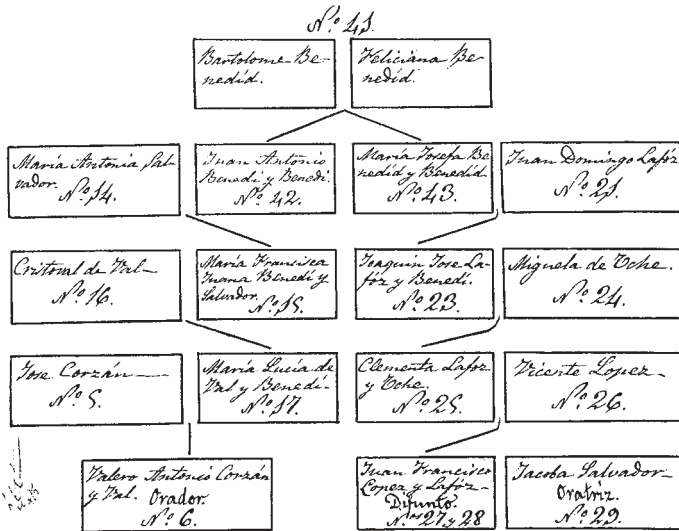 Nº 41.
Bartolome Be-
nedid.
Feliciana Be
nedid.
María Antonia Sal-
vador.
Nº 14.
Juan Antonio
Benedi y Benedi.
Nº 42.
María Josefa Be
nedid y Benedid.
Nº 43.
Juan Domingo Lafóz
Nº 21.
Cristoval de Val-
Nº 16.
María Francisca
Juana Benedí y
Salvador.
Nº 15.
Joaquin Jose La-
fóz y Benedí.
Nº 23.
Miguela de Oche.
Nº 24.
Jose Corzán-
Nº 5.
María Lucía de
Val y Benedí-
Nº 17.
Clementa Lafoz
y Oche.
Nº 25.
Vicente Lopez-
Nº 26.
Valero Antonio Corzán
y Val. Orador.
Nº 6.
Juan Francisco
Lopez y Lafóz-
Difunto.
Nos 27 y 28
Jacoba Salvador-
Oratriz.
Nº 29.